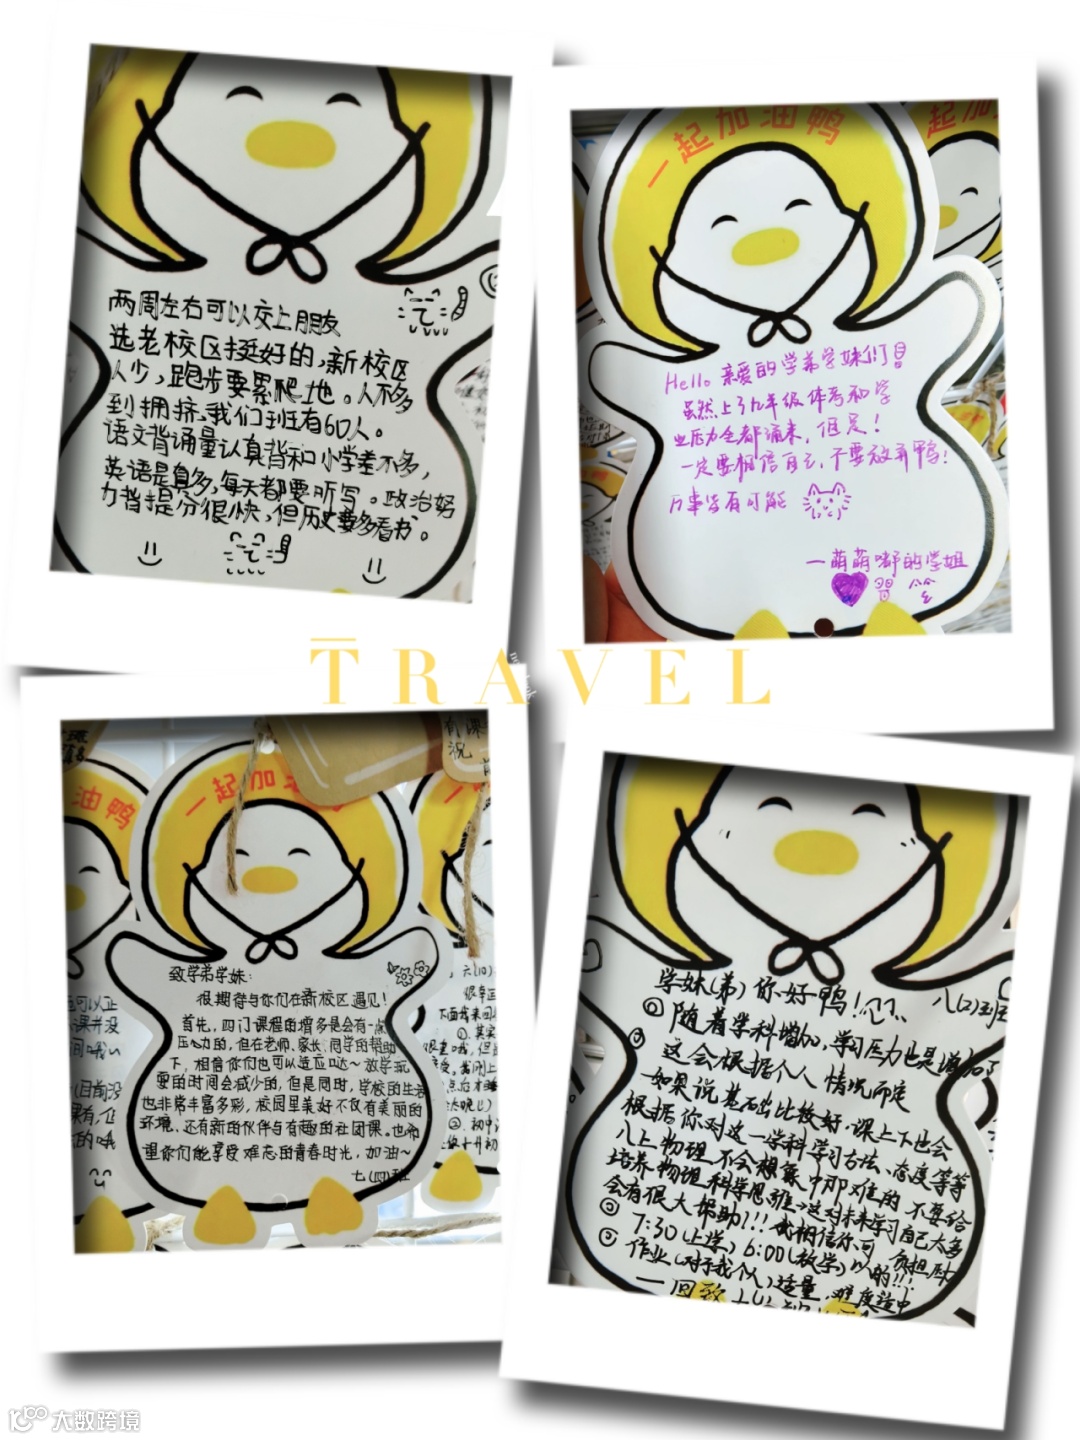 两周左右可以交上朋友
选老校区挺好的，新校区
人少，跑步要累爬地。人不多
到拥挤，我们班有60人。
语文背诵量认真背和小学差不多，
英语是真多，每天都要听写。政治努
力背提分很快，但历史要多看书。
一起加油鸭
一起加
Hello。亲爱的学弟学妹们
虽然上了九年级体考和学
业压力全都涌来，但是！
一定要相信自己，不要放弃鸭！
万事皆有可能
一萌萌嘟的学姐
TRAVEL
油鸭
一起加油
致学弟学妹：
很期待与你们在新校区遇见！
首先，四门课程的增多是会有一点
压力的，但在老师、家长、同学的帮助
下，相信你们也可以适应哒～放学玩
耍的时间会减少的，但是同时，学校的生活
也非常丰富多彩，校园里美好不仅有美丽的
环境、还有新的伙伴与有趣的社团课。也希
望你们能享受难忘的青春时光，加油～
七(四)班
学妹(弟)你好鸭！
八(2)班
随着学科增加，学习压力也是增加了
这会根据个人情况而定
如果说基础比较好，课上下也会
根据你对这一学科学习方法、态度等等
八上物理不会想象中那难的 不要给
培养物理科学思维→这对未来学习自己太多
会有很大帮助！！！我相信你可 负担压力
7:30(上学) 6:00(放学) 以的！！！
作业(对于我个人)适量，难度适中
大数跨境